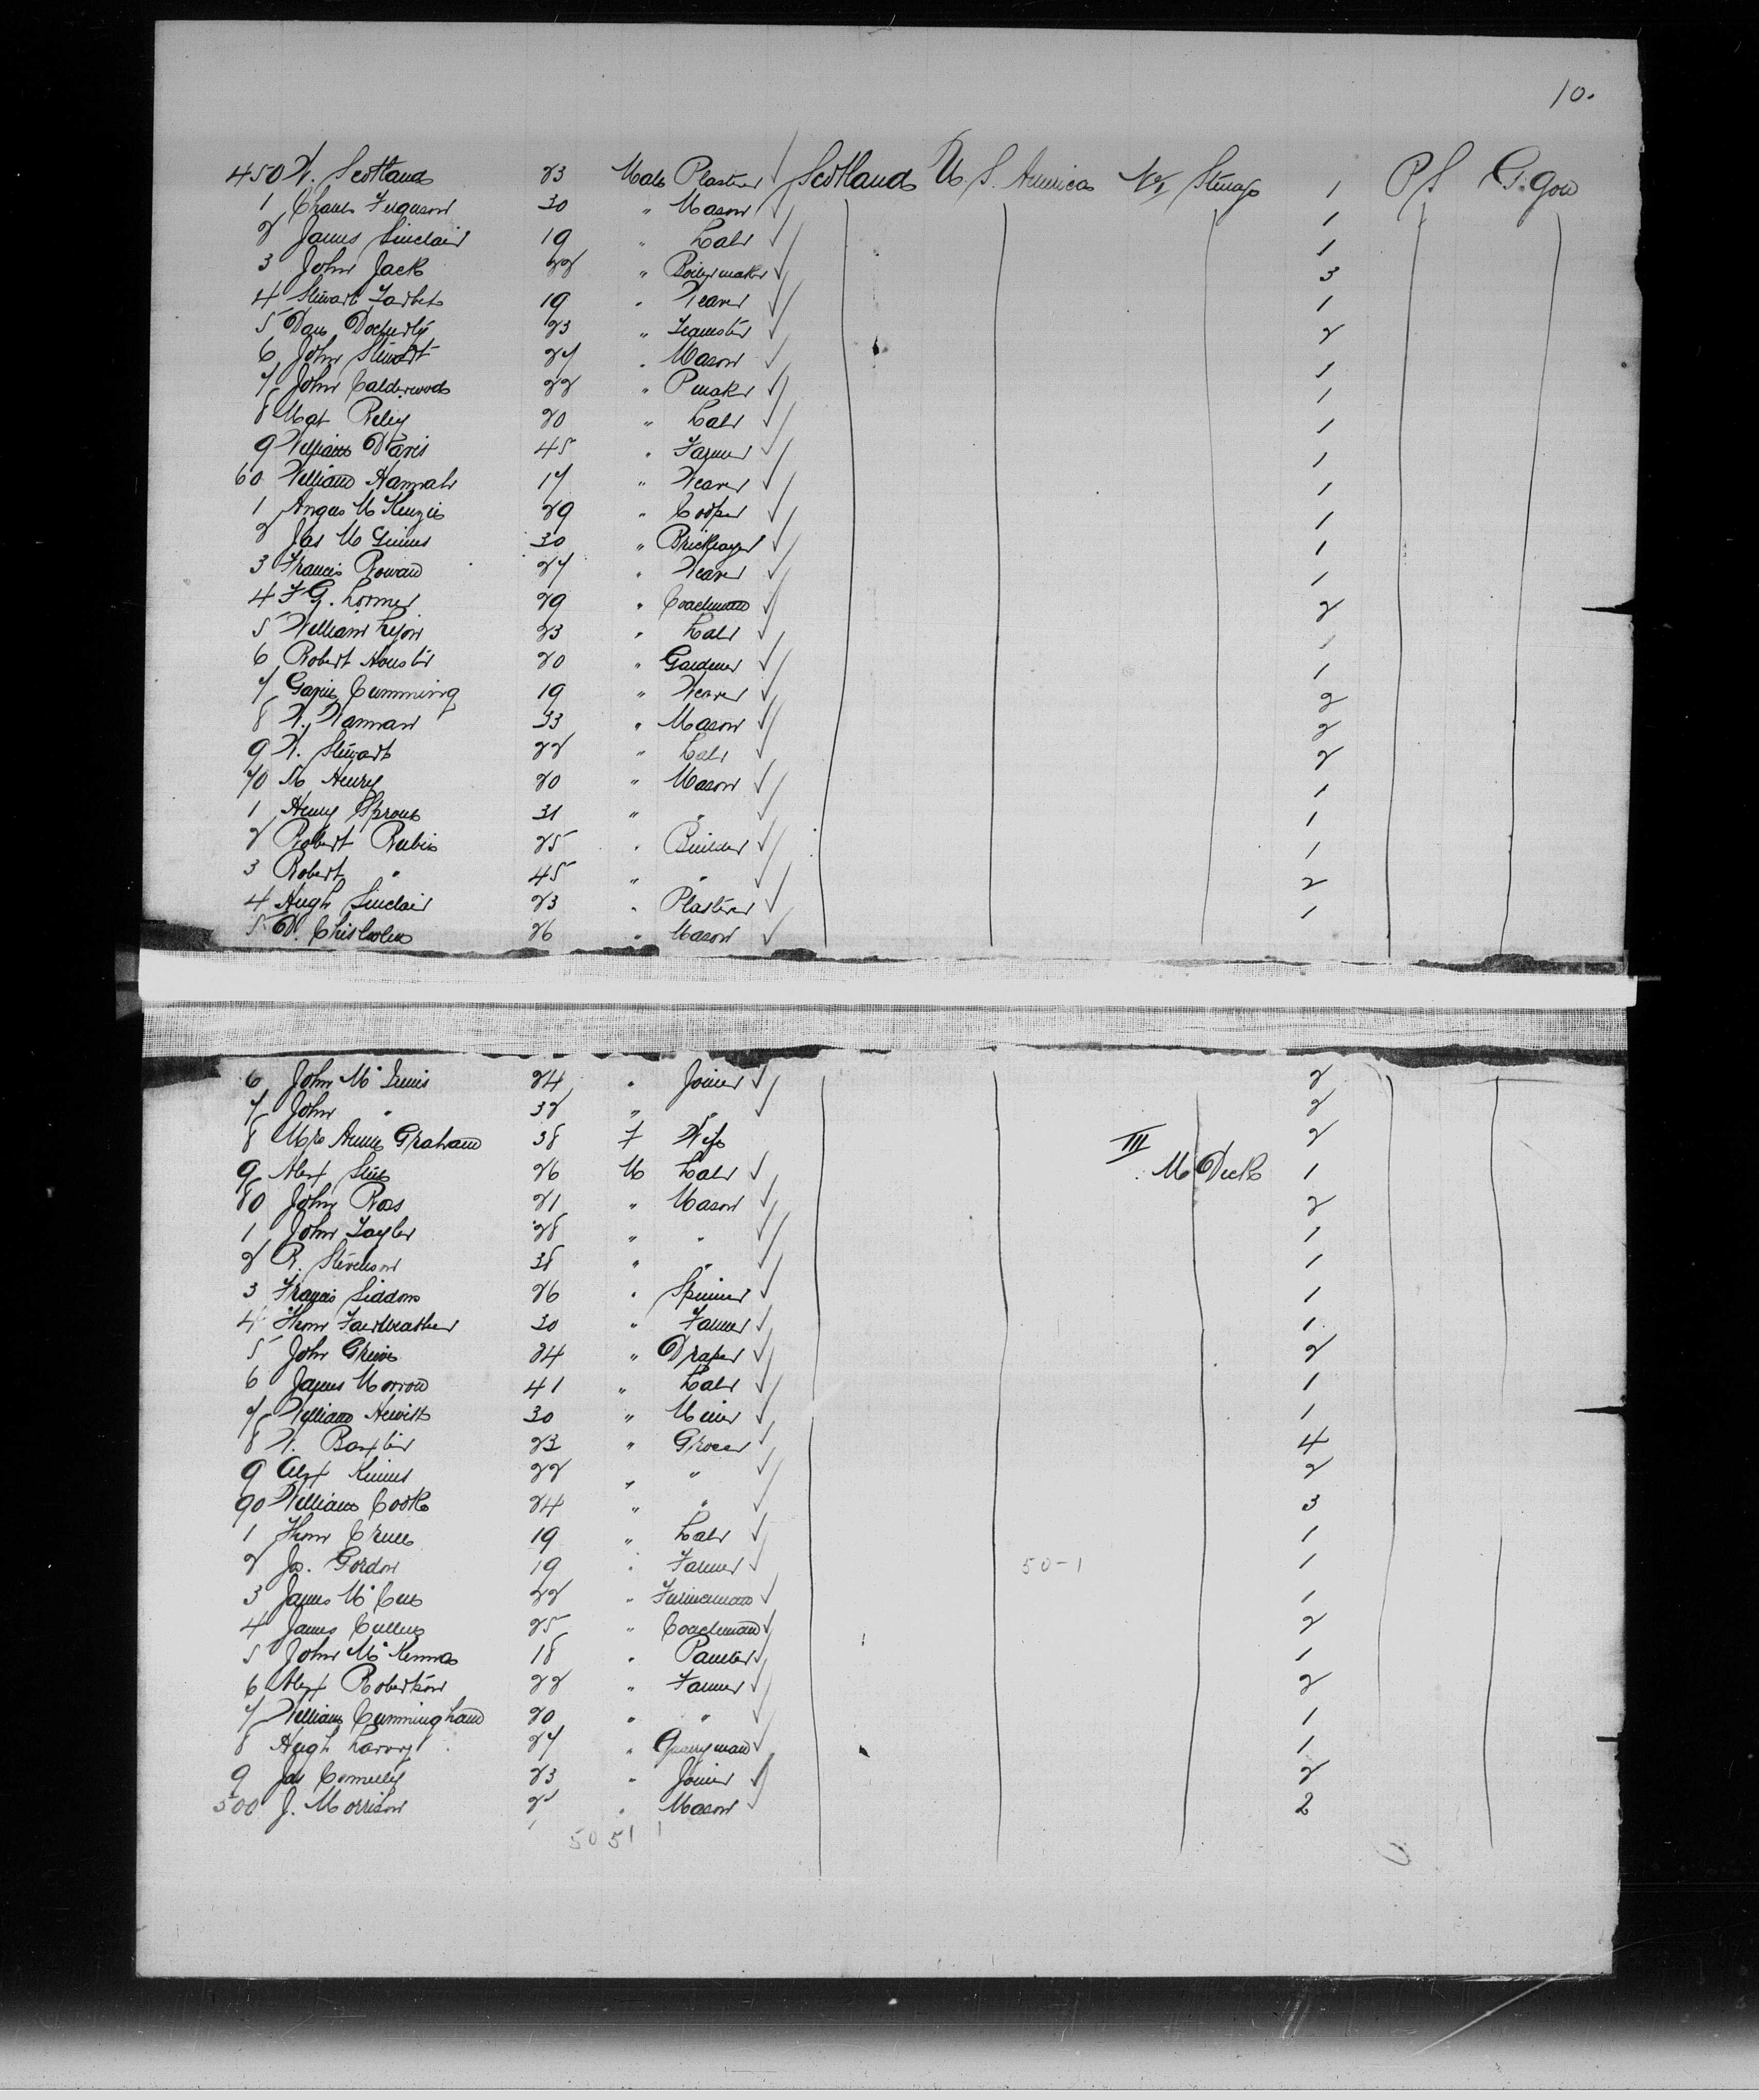 10.
450 W. Scotland 23 Male Plasterer Scotland U. S. America No 1 Steerage 1 P S G.gow
1 Charles Ferguson 30 " Mason 1
2 James Sinclair 19 " Labr 1
3 John Jack 22 " Boilermaker 3
4 Stewart 19 " Weaver 1
5 Dan Docherty 23 " Teamster 2
6 John Stewart 27 " Mason 1
7 John Calderwood 22 " P maker 1
8 Mat Reley 20 " Labr 1
9 William Davis 45 " Farmer 1
60 William Hannah 17 " Weaver 1
1 Angus McKenzie 29 " Cooper 1
2 Jas McGinnis 30 " Bricklayer 1
3 Francis Rowan 27 " Weaver 1
4 F G. Lormer 29 " Coachman 2
5 William Lyon 23 " Labr 1
6 Robert Houster 20 " Gardener 1
7 Gavin Cumming 19 " Weaver 2
8 W. Wannan 33 " Mason 2
9 W. Stewart 22 " Labr 2
70 M Henry 20 " Mason 1
1 Henry Sproul 31 " " 1
2 Robert Rubie 25 " Builder 1
3 Robert " 45 " " 2
4 Hugh Sinclair 23 " Plasterer 1
5 D. Chisholm 26 " Mason
6 John McInnis 24 " Joiner 2
7 John " 32 " " 2
8 Mrs Annie Graham 38 F Wife 2
9 Alex 26 M Labr III M Deck 1
80 John Ross 21 " Mason 2
1 John Taylor 28 " " 1
2 R. Stevenson 38 " " 1
3 Francis Siddons 26 " Spinner 1
4 Thom Fairweather 30 " Farmer 1
5 John Grieve 24 " Draper 2
6 James Morrow 41 " Labr 1
7 William Hewitt 30 " Miner 1
8 W. Baxter 23 " Grocer 4
9 Alex 22 " " 2
90 William Cook 24 " " 3
1 Thom 19 " Labr 1
2 Jas. Gordon 19 " Farmer 50-1 1
3 James McCue 22 " Furnaceman 1
4 James Cullen 25 " Coachman 2
5 John McKenna 18 " Painter 1
6 Alex Robertson 22 " Farmer 2
7 William Cunningham 20 " " 1
8 Hugh 27 " Quarryman 1
9 Jas Connelly 23 " Joiner 2
500 J. Morrison " Mason 2
50 51 1